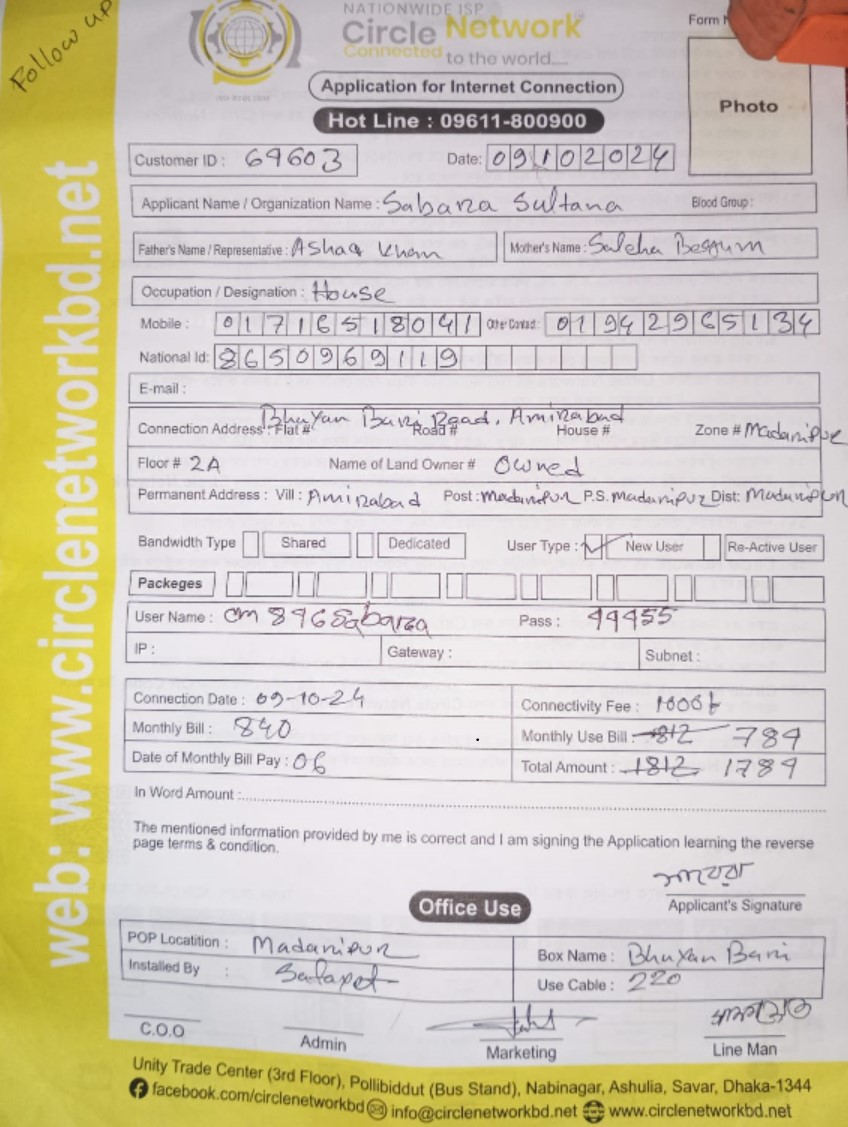 Follow up
NATIONWIDE ISP
Circle Network
Connected to the world....
Form
Application for Internet Connection
Hot Line : 09611-800900
Photo
Customer ID : 69603 Date: 09102024
Applicant Name / Organization Name : Sabara Sultana Blood Group :
Father's Name / Representative : Ashaq Khan Mother's Name : Saleha Beggum
Occupation / Designation : House
Mobile : 01716518041 Other Contact : 01942965134
National Id: 8650969119
E-mail :
Bhuyan Bari Road, Amirabad
Connection Address : Flat # Road # House # Zone # Madaripur
Floor # 2A Name of Land Owner # Owned
Permanent Address : Vill : Amirabad Post : Madaripur P.S. Madaripur Dist: Madaripur
Bandwidth Type Shared Dedicated User Type : ✓ New User Re-Active User
Packeges
User Name : cm896Sabara Pass : 44455
IP : Gateway : Subnet :
Connection Date : 09-10-24 Connectivity Fee : 1000৳
Monthly Bill : 840 Monthly Use Bill : 812 789
Date of Monthly Bill Pay : 06 Total Amount : 1812 1789
In Word Amount :
The mentioned information provided by me is correct and I am signing the Application learning the reverse
page terms & condition.
সাবরা
Applicant's Signature
Office Use
POP Locatition : Madaripur Box Name : Bhuyan Bari
Installed By : Use Cable : 220
C.O.O Admin Marketing Line Man
Unity Trade Center (3rd Floor), Pollibiddut (Bus Stand), Nabinagar, Ashulia, Savar, Dhaka-1344
facebook.com/circlenetworkbd info@circlenetworkbd.net www.circlenetworkbd.net
web: www.circlenetworkbd.net